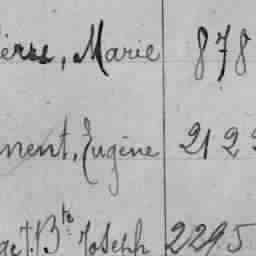 ière, Marie 878
ment, Eugène 2123
et. Bte Joseph 2295